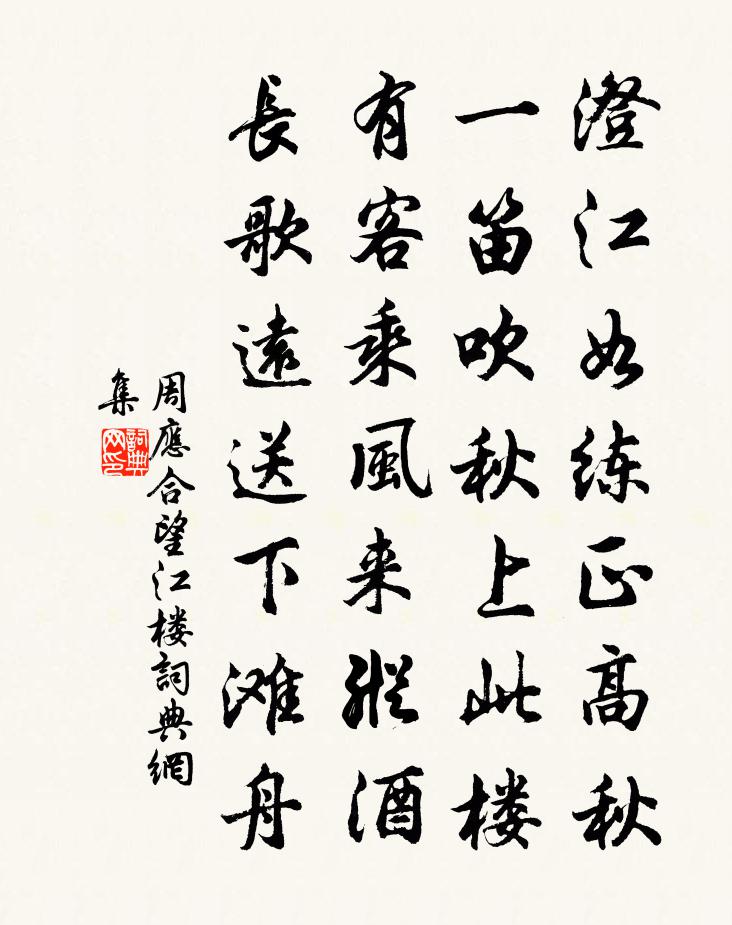 澄江如练正高秋
一笛吹秋上此楼
有客乘風来縱酒
長歌遠送下滩舟
周應合望江楼詞典網
集
詞典
网印